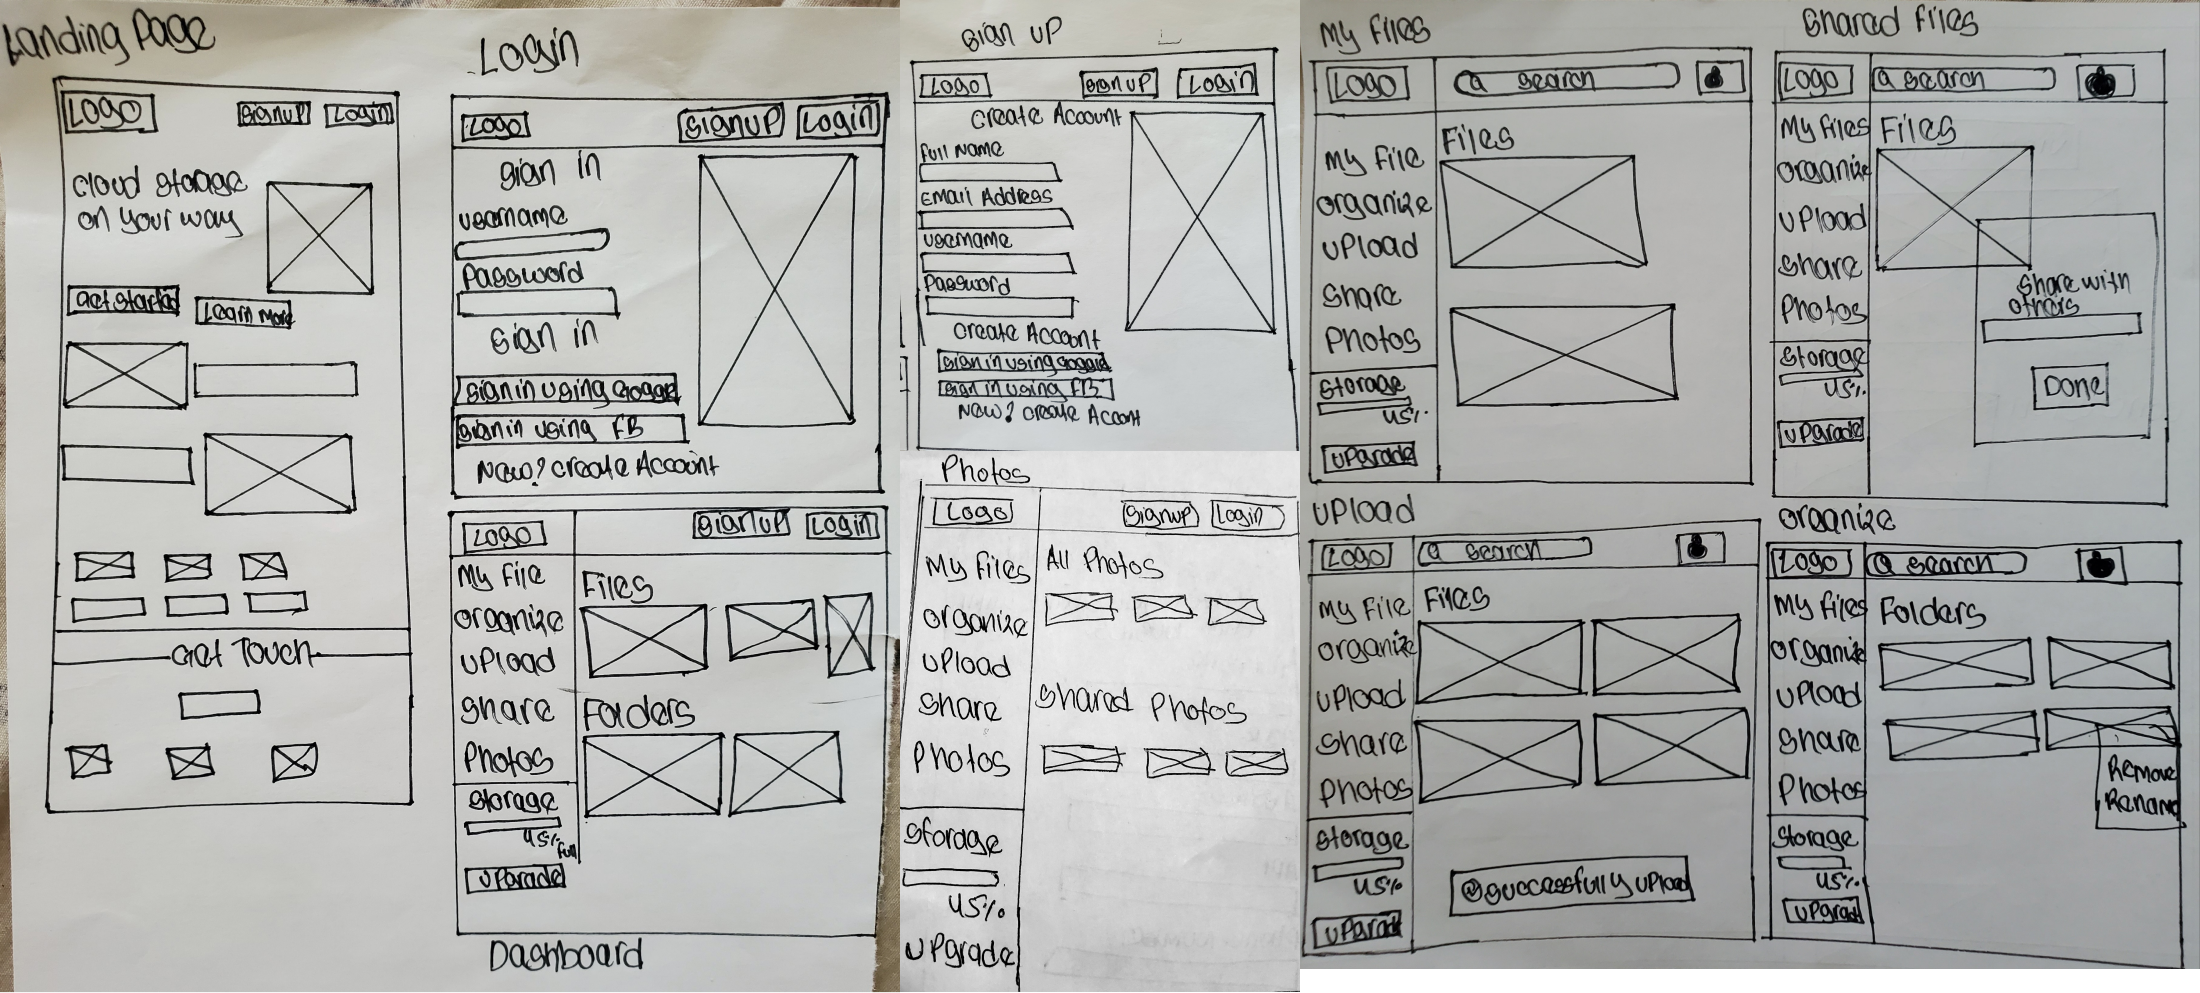 Landing Page
Logo
SignUP
Login
Cloud storage
on your way
Get Started
Learn More
Get Touch
Login
Logo
SignUP
Login
Sign in
Username
Password
Sign in
Sign in using Google
Sign in using FB
New? Create Account
Logo
SignUP
Login
My File
Organize
Upload
Share
Photos
Storage
45%
full
UPgrade
Files
Folders
Dashboard
Sign UP
Logo
SignUP
Login
Create Account
Full Name
Email Address
Username
Password
Create Account
Sign in using Google
Sign in using FB
New? Create Account
Photos
Logo
SignUP
Login
My Files
Organize
Upload
Share
Photos
Storage
45%
UPgrade
All Photos
Shared Photos
My Files
Logo
Search
My File
Organize
Upload
Share
Photos
Storage
45%
UPgrade
Files
Shared Files
Logo
Search
My Files
Organize
Upload
Share
Photos
Storage
45%
UPgrade
Files
Share with
others
Done
Upload
Logo
Search
My File
Organize
Upload
Share
Photos
Storage
45%
UPgrad
Files
Successfully Upload
Organize
Logo
Search
My Files
Organize
Upload
Share
Photos
Storage
45%
UPgrad
Folders
Remove
Rename